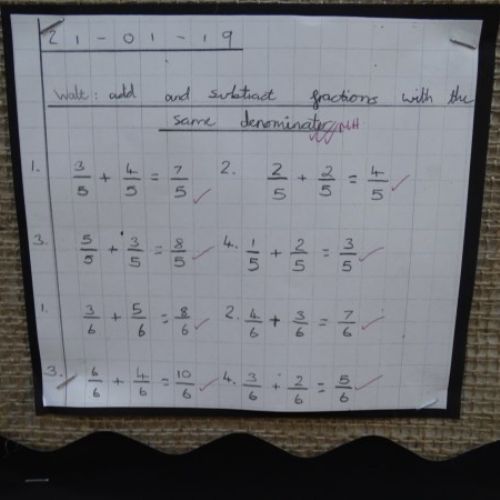 21-01-19
Walt: add and subtract fractions with the
same denominator
1. 3/5 + 4/5 = 7/5 2. 2/5 + 2/5 = 4/5
3. 5/5 + 3/5 = 8/5 4. 1/5 + 2/5 = 3/5
1. 3/6 + 5/6 = 8/6 2. 4/6 + 3/6 = 7/6
3. 6/6 + 4/6 = 10/6 4. 3/6 + 2/6 = 5/6